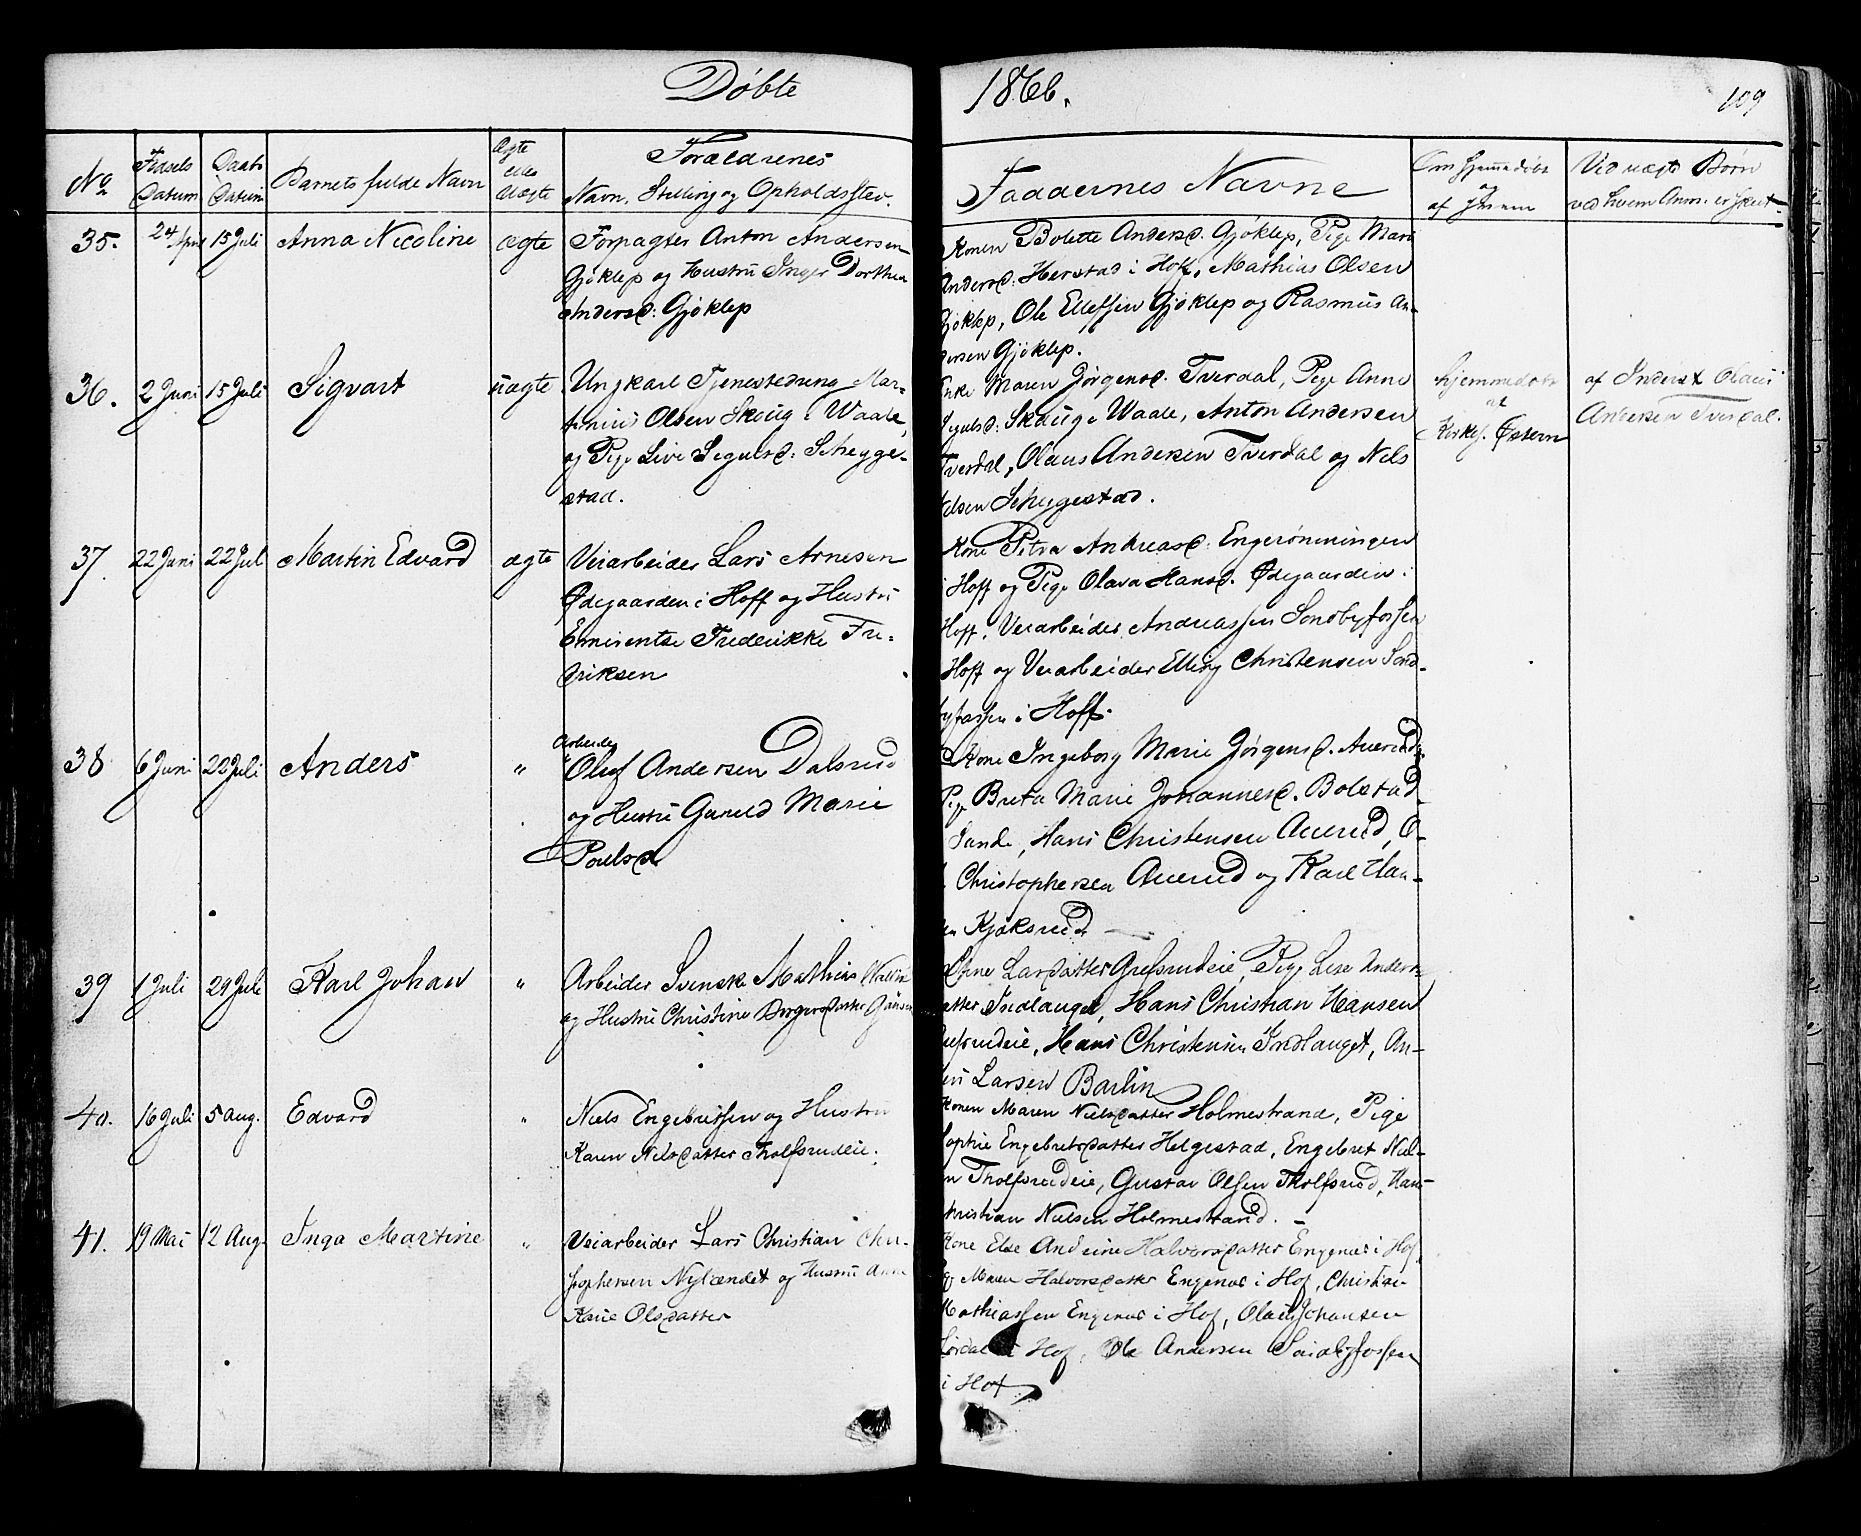 Døbte
1866.
109
No
Fødsels
Datum
Daabs
Datum
Barnets fulde Navn
Ægte
eller
Uægte
Forældrenes
Navn, Stilling og Opholdssted.
Faddernes Navne
Om hjemmedøbt
og
af hvem
Ved uægte Børn
ved hvem Anm. er skeet.
35. 24 April 15 Juli Anna Nicoline ægte
Forpagter Anton Andersen
Gjøklep og Hustru Inger Dorthea
Andersd: Gjøklep
Konen Bolette Andersd. Gjøklep, Pige Mari
Andersd: Herstad i Hoff, Mathias Olsen
Gjøklep, Ole Ellefsen Gjøklep og Rasmus An-
dersen Gjøklep.
36. 2 Juni 15 Juli Sigvart uægte
Ungkarl Tjenestedreng Mar-
tinius Olsen Skoug i Waale,
og Pige Live Segulsd: Schegge-
stad.
Enke Maren Jørgensd. Tverdal, Pige Anne
Segulsd: Skoug i Waale, Anton Andersen
Tverdal, Olaus Andersen Tverdal og Nels
Nelsen Scheggestad.
hjemmedøbt
af
Kirkes. Østern
af Inderst Olaus
Andersen Tverdal.
37. 22 Juni 22 Jul Martin Edvard ægte
Veiarbeider Lars Arnesen
Ødegaarden i Hoff og Hustru
Emientse Frederikke Fre-
driksen
Kone Petra Andreasd: Engerønningen
i Hoff og Pige Olava Hansd. Ødegaarden i
Hoff, Veiarbeider Andreassen Sondbyfossen
Hoff og Veiarbeider Elling Christensen Sond-
byfossen i Hoff.
38 6 Juni 22 Juli Anders "
Arbeider
Oluf Andersen Dalsrud
og Hustru Gunild Marie
Poulsd
Kone Ingeborg Marie Jørgensd. Auerud,
Pige Breta Marie Johannesd. Bolstad
Sande, Hans Christensen Auerud, O-
Christophersen Auerud og Karl Han-
sen Kjøksrud
39 1 Juli 29 Juli Karl Johan "
Arbeider Svenske Mathias Wallin
og Hustru Christine Birgersdatter
Larsdatter Grefsrudeie, Pige Lise Anders-
datter Indlauget, Hans Christian Hansen
Grefsrudeie, Hans Christensen Indlauget, An-
Larsen Barlin
40. 16 Juli 5 Aug. Edvard "
Niels Engebretsen og Hustru
Karen Nilsdatter Tholfsrudeie.
Konen Maren Nielsdatter Holmestrand, Pige
Sophie Engebretsdatter Helgestad, Engebret Niel-
sen Tholfsrudeie, Gustav Olsen Tholfsrud, Hans
Christian Nielsen Holmestrand. –
41. 19 Mai 12 Aug. Inga Martine "
Veiarbeider Lars Christian Chri-
stophersen Nylændet og Hustru Anne
Karie Olsdatter
Kone Else Andrine Halvorsdatter Engenæs i Hof,
Pige Maren Halvorsdatter Engenæs i Hof, Christian
Mathiassen Engenæs i Hof, Olaus Johansen
Lørdal i Hof, Ole Andersen Sundbyfossen
i Hof